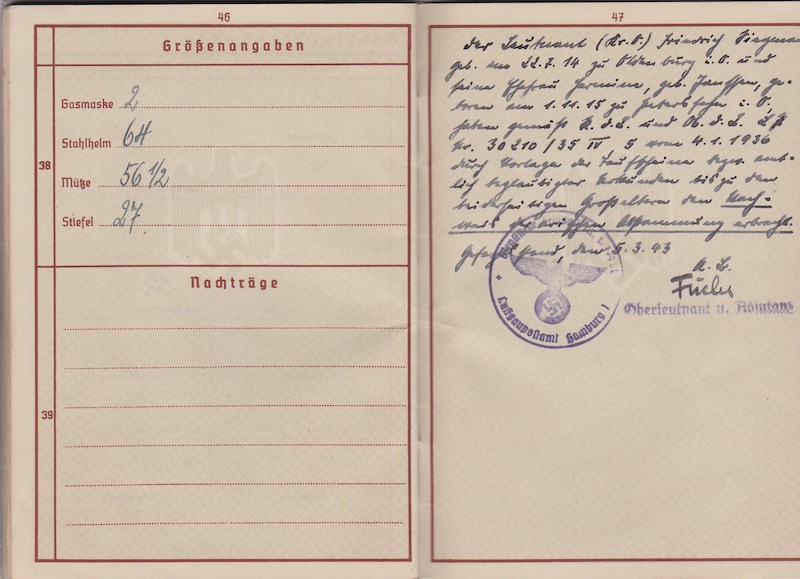 46
Größenangaben
38
Gasmaske 2
Stahlhelm 64
Mütze 56 1/2
Stiefel 27
Nachträge
39
47
Der Leutnant (Kr.O.) Friedrich
geb. am 22.7.14 zu Oldenburg i.O. und
seine Ehefrau Hermine, geb. Janssen, ge-
boren am 1.11.15 zu Petersfehn i. O.
haben gemäß R.d.L. und Ob.d.L. LP
Nr. 30210/35 IV, 5 vom 4.1.1936
durch Vorlage der Taufscheine bezw. amt-
lich beglaubigter Urkunden bis zu den
beiderseitigen Großeltern den Nach-
weis der arischen Abstammung erbracht.
den 5.3.43
Oberleutnant u. Adjutant
Luftgaupostamt Hamburg 1